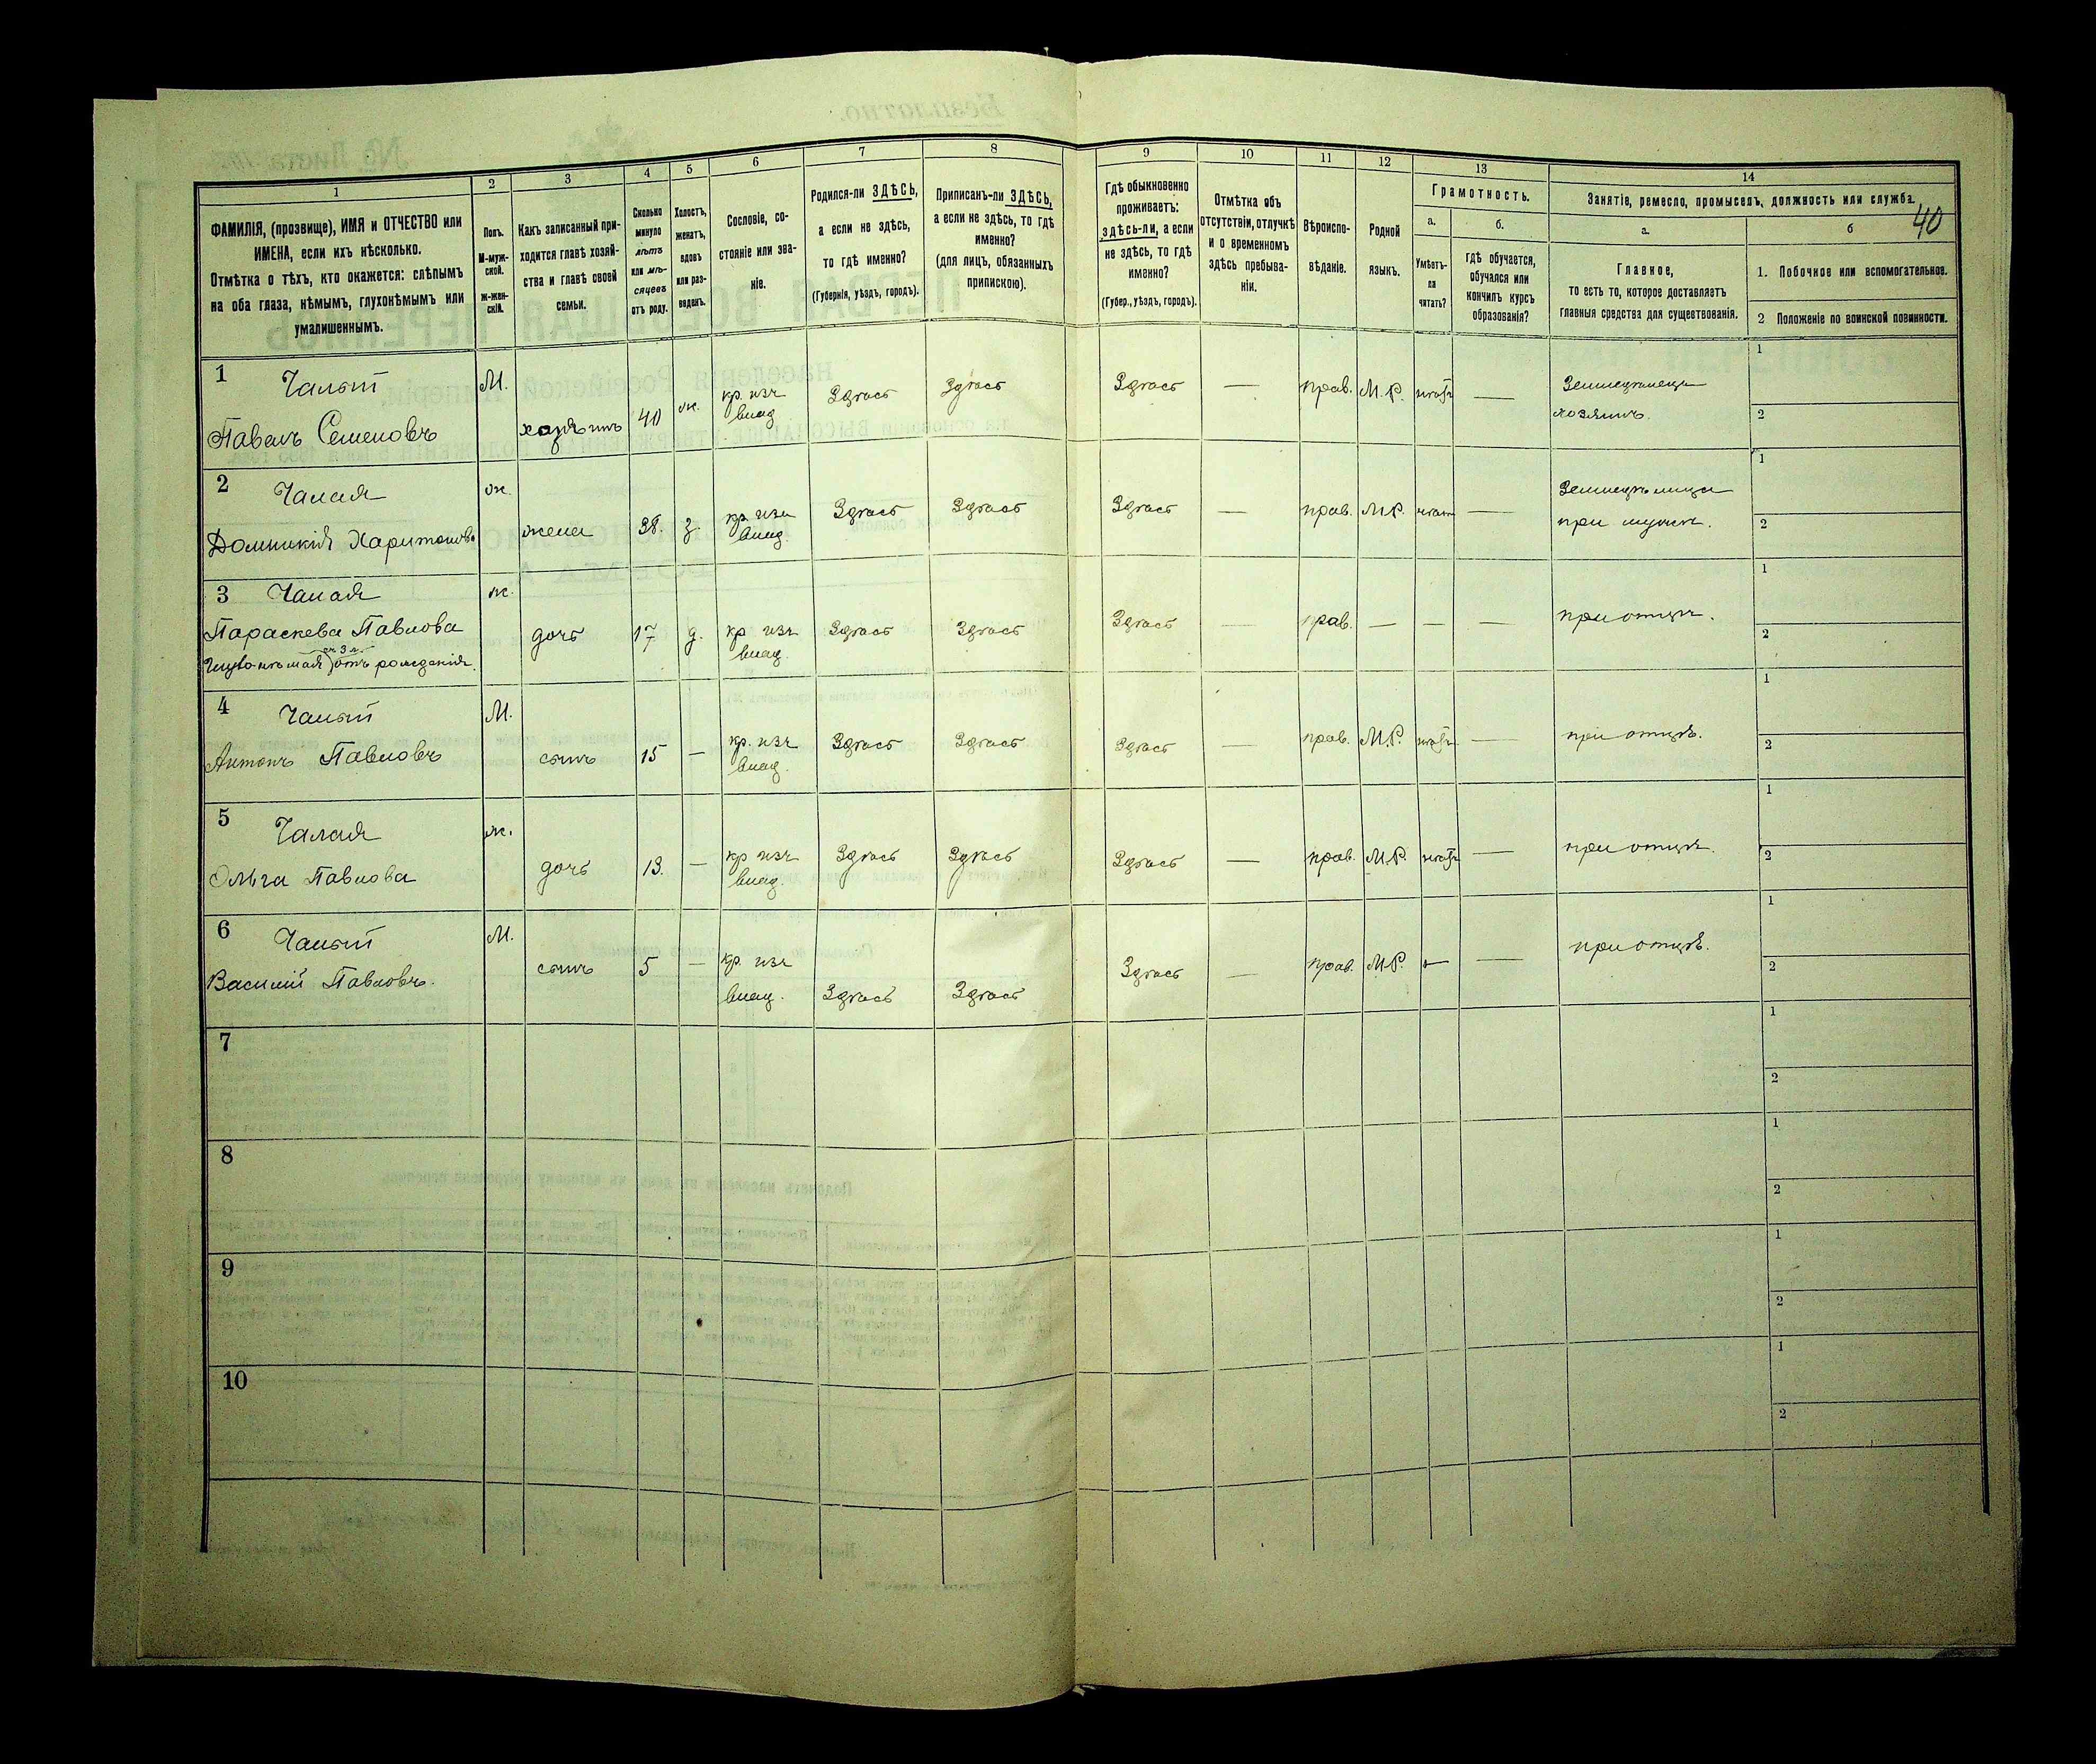 40
1
2
3
4
5
6
7
8
9
10
11
12
13
14
ФАМИЛІЯ, (прозвище), ИМЯ и ОТЧЕСТВО или
ИМЕНА, если ихъ нѣсколько.
Отмѣтка о тѣхъ, кто окажется: слѣпымъ
на оба глаза, нѣмымъ, глухонѣмымъ или
умалишеннымъ.
Полъ.
М-муж-
ской.
Ж-жен-
скій.
Какъ записанный при-
ходится главѣ хозяй-
ства и главѣ своей
семьи.
Сколько
минуло
лѣтъ
или мѣ-
сяцевъ
отъ роду.
Холостъ,
женатъ,
вдовъ
или раз-
веденъ.
Сословіе, со-
стояніе или зва-
ніе.
Родился-ли ЗДѢСЬ,
а если не здѣсь,
то гдѣ именно?
(Губернія, уѣздъ, городъ).
Приписанъ-ли ЗДѢСЬ,
а если не здѣсь, то гдѣ
именно?
(для лицъ, обязанныхъ
припискою).
Гдѣ обыкновенно
проживаетъ:
здѣсь-ли, а если
не здѣсь, то гдѣ
именно?
(Губер., уѣздъ, городъ).
Отмѣтка объ
отсутствіи, отлучкѣ
и о временномъ
здѣсь пребыва-
ніи.
Вѣроиспо-
вѣданіе.
Родной
языкъ.
Грамотность.
а.
Умѣетъ-
ли
читать?
б.
гдѣ обучается,
обучался или
кончилъ курсъ
образованія?
Занятіе, ремесло, промыселъ, должность или служба.
а.
Главное,
то есть то, которое доставляетъ
главныя средства для существованія.
б
1. Побочное или вспомогательное.
2 Положеніе по воинской повинности.
1 Чалый М. 1
Павелъ Семеновъ хозяинъ 40 ж. кр. изъ влад. Здѣсь Здѣсь Здѣсь — прав. М.Р. нѣтъ — Земледѣлецъ хозяинъ. 2
2 Чалая ж. 1
Домникія Харитонова жена 38. з. кр. изъ влад. Здѣсь Здѣсь Здѣсь — прав. М.Р. нѣтъ — при мужѣ. 2
3 Чалая ж. 1
Параскева Павлова дочь 17 д. кр изъ влад. Здѣсь Здѣсь Здѣсь — прав. — — — при отцѣ. 2
глухонѣмая отъ рожденія.
4 Чалый М. 1
Антонъ Павловъ сынъ 15 — кр. изъ влад. Здѣсь Здѣсь Здѣсь — прав. М.Р. нѣтъ — при отцѣ. 2
5 Чалая ж. 1
Ольга Павлова дочь 13. — кр изъ влад. Здѣсь Здѣсь Здѣсь — прав. М.Р. нѣтъ — при отцѣ. 2
6 Чалый М. 1
Василий Павловъ. сынъ 5 — кр. изъ влад. Здѣсь Здѣсь Здѣсь — прав. М.Р. — — при отцѣ. 2
7 1
2
8 1
2
9 1
2
10 1
2